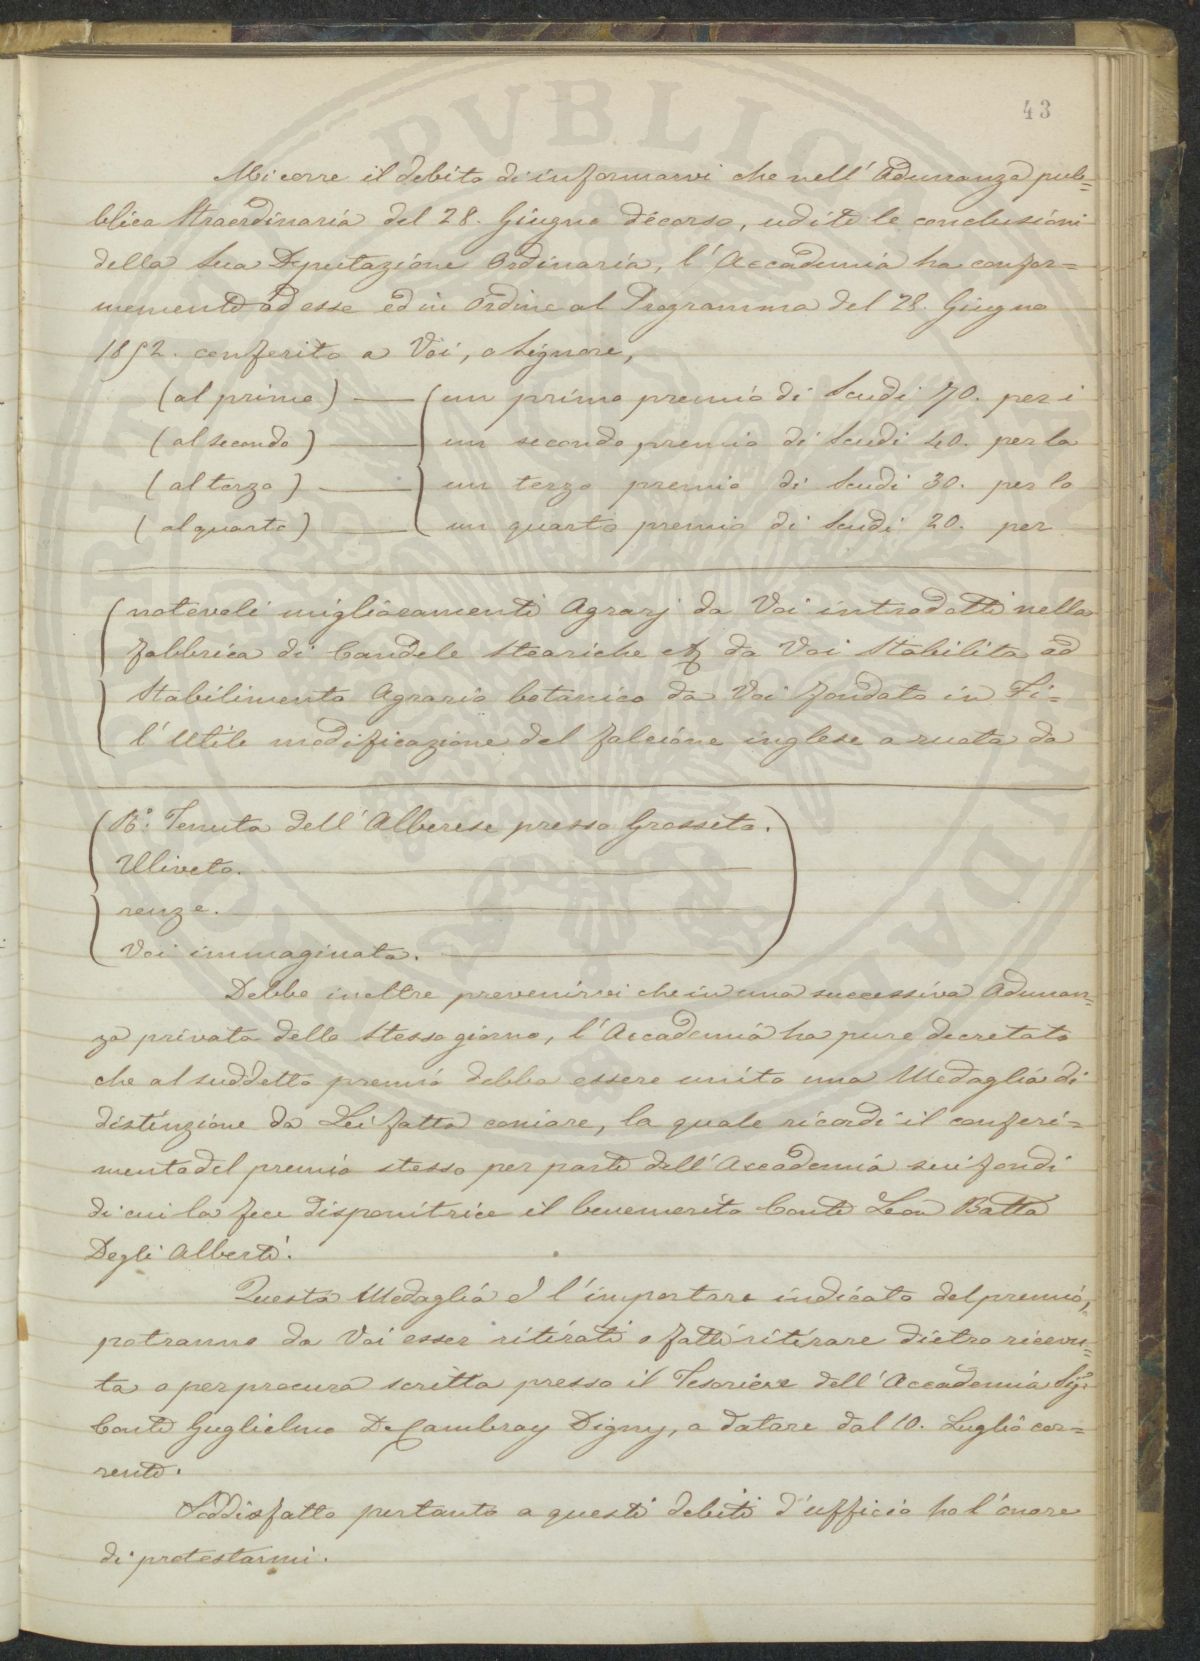 43
Mi corre il debito di informarvi che nell'Adunanza pub=
blica straordinaria del 28. Giugno decorso, udite le conclusioni
della sua Deputazione Ordinaria, l'Accademia ha confor=
memente ad esse ed in ordine al Programma del 28. Giugno
1852. conferito a Voi, o Signore,
(al primo) — (un primo premio di Scudi 70. per i
(al secondo) — un secondo premio di Scudi 40. per la
(al terzo) — un terzo premio di Scudi 30. per lo
(al quarto) — un quarto premio di Scudi 20. per
(notevoli miglioramenti Agrarj da Voi introdotti nella
fabbrica di Candele steariche da Voi stabilita ad
Stabilimento Agrario botanico da Voi fondato in Fi=
l'utile modificazione del falcione inglese a ruota da
(R.ª Tenuta dell'Alberese presso Grosseto.
Uliveto.
renze.
Voi immaginata.
Debbo inoltre prevenirvi che in una successiva Adunan=
za privata dello stesso giorno, l'Accademia ha pure decretato
che al suddetto premio debba essere unita una Medaglia di
distinzione da Lei fatta coniare, la quale ricordi il conferi=
mento del premio stesso per parte dell'Accademia sui fondi
di cui la fece disponitrice il benemerito Conte Leon Batta
Degli Alberti.
Questa Medaglia e l'importare indicato del premio,
potranno da Voi esser ritirati o fatti ritirare dietro ricevu=
ta o per procura scritta presso il Tesoriere dell'Accademia Sig.
Conte Guglielmo De Cambray Digny, a datare dal 10. Luglio cor=
rente.
Soddisfatto pertanto a questi debiti d'ufficio ho l'onore
di protestarmi.